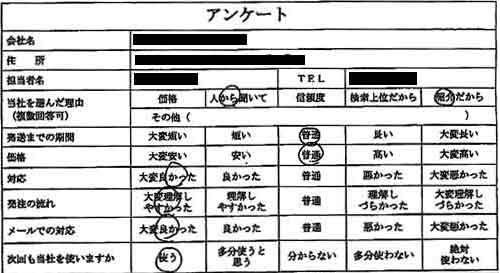 アンケート
会社名
住　所
担当者名　TEL
当社を選んだ理由
(複数回答可)
価格　人から聞いて　信頼度　検索上位だから　紹介だから
その他（　　）
発送までの期間　大変短い　短い　普通　長い　大変長い
価格　大変安い　安い　普通　高い　大変高い
対応　大変良かった　良かった　普通　悪かった　大変悪かった
発注の流れ　大変理解しやすかった　理解しやすかった　普通　理解しづらかった　大変理解しづらかった
メールでの対応　大変良かった　良かった　普通　悪かった　大変悪かった
次回も当社を使いますか　使う　多分使うと思う　分からない　多分使わない　絶対使わない